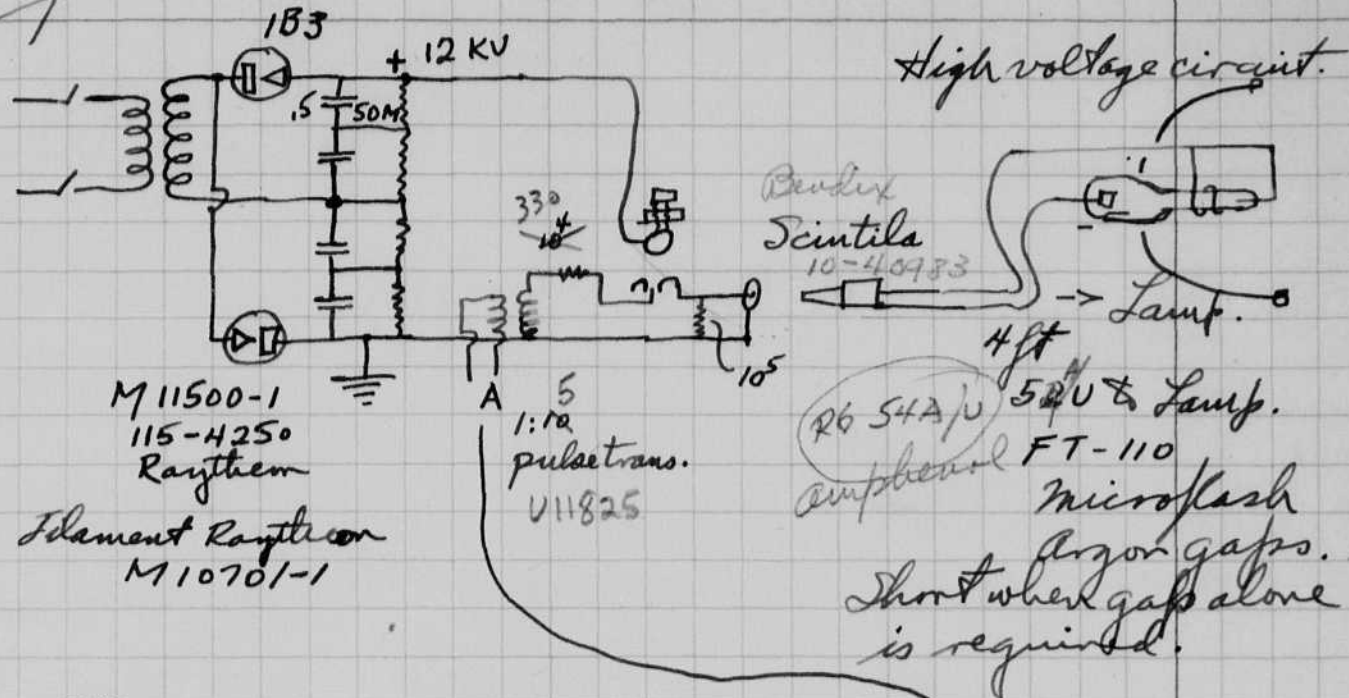 1B3
+ 12 KV
High voltage circuit.
.5
50M
330
10⁴
Bendix
Scintila
10-40983
-> Lamp.
4 ft
10⁵
M 11500-1
115-4250
Raytheon
Filament Raytheon
M 10701-1
A
5
1:10
pulse trans.
U11825
RG 54A/U
amphenol
Lamp.
FT-110
Microflash
Argon gaps.
Short when gap alone
is required.